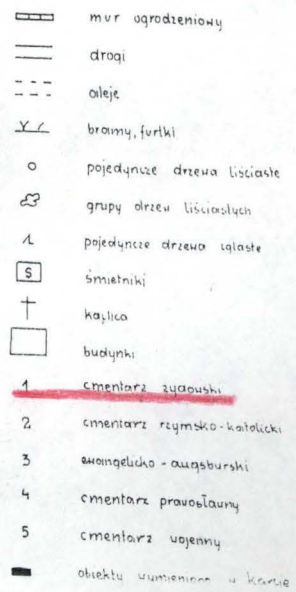 mur ogrodzeniowy
drogi
aleje
bramy, furtki
pojedyncze drzewa liściaste
grupy drzew liściastych
pojedyncze drzewa iglaste
S śmietniki
kaplica
budynki
1 cmentarz żydowski
2 cmentarz rzymsko-katolicki
3 ewangelicko-augsburski
4 cmentarz prawosławny
5 cmentarz wojenny
obiekty wymienione w karcie